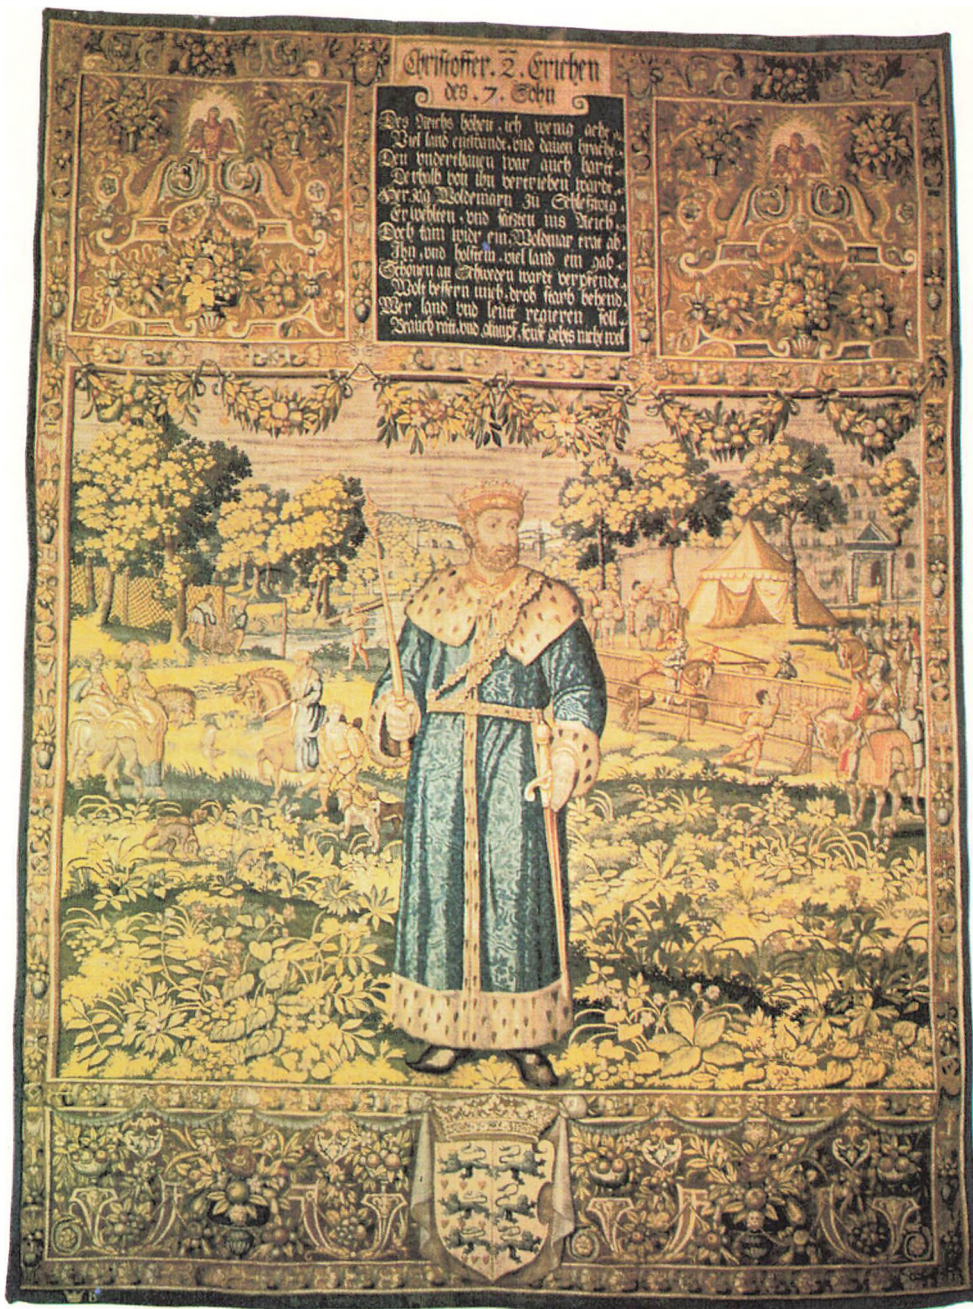 Christoffer. 2. Erichen
des. 7. Sohn
Des Reichs hoheit. ich wenig achte.
Viel land entwande. vnd dauon brachte.
Den vnderthanen war auch hartt.
Derhalb von ihn vertrieben warde.
Hertzog Woldemarn zu Schleßwig
Erwehlten. vnd setzten ins Reich.
Doch kam wider ein. Woldmar trat ab.
Ihn. vnd holstein. viel land ein gab.
Schonen an Schweden wardt verpfendt.
Wolt bessern mich. drob starb behend.
Wer land vnd leutt regieren soll.
Brauch ratt. vnd glimpf. sonst gehts nicht wol